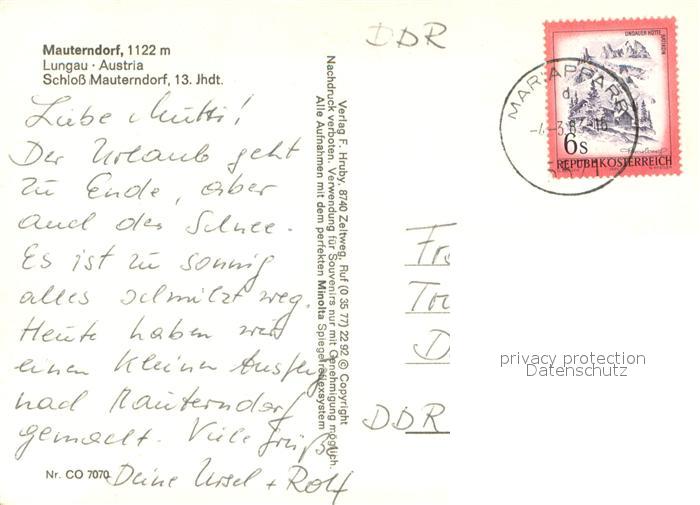 Mauterndorf, 1122 m
Lungau · Austria
Schloß Mauterndorf, 13. Jhdt.
Liebe Mutti!
Der Urlaub geht
zu Ende, aber
auch der Schnee.
Es ist zu sonnig
alles schmilzt weg.
Heute haben wir
einen kleinen Ausflug
nach Mauterndorf
gemacht. Viele Grüße
Deine Ursel + Rolf
Nr. CO 7070
Verlag F. Hruby, 8740 Zeltweg, Ruf (0 35 77) 22 92 © Copyright
Nachdruck verboten. Verwendung für Souvenirs nur mit Genehmigung möglich.
Alle Aufnahmen mit dem perfekten Minolta Spiegelreflexsystem
DDR
LINDAUER HÜTTE
RÄTIKON
6s
REPUBLIK ÖSTERREICH
MARIAPFARR
5571
DDR
privacy protection
Datenschutz